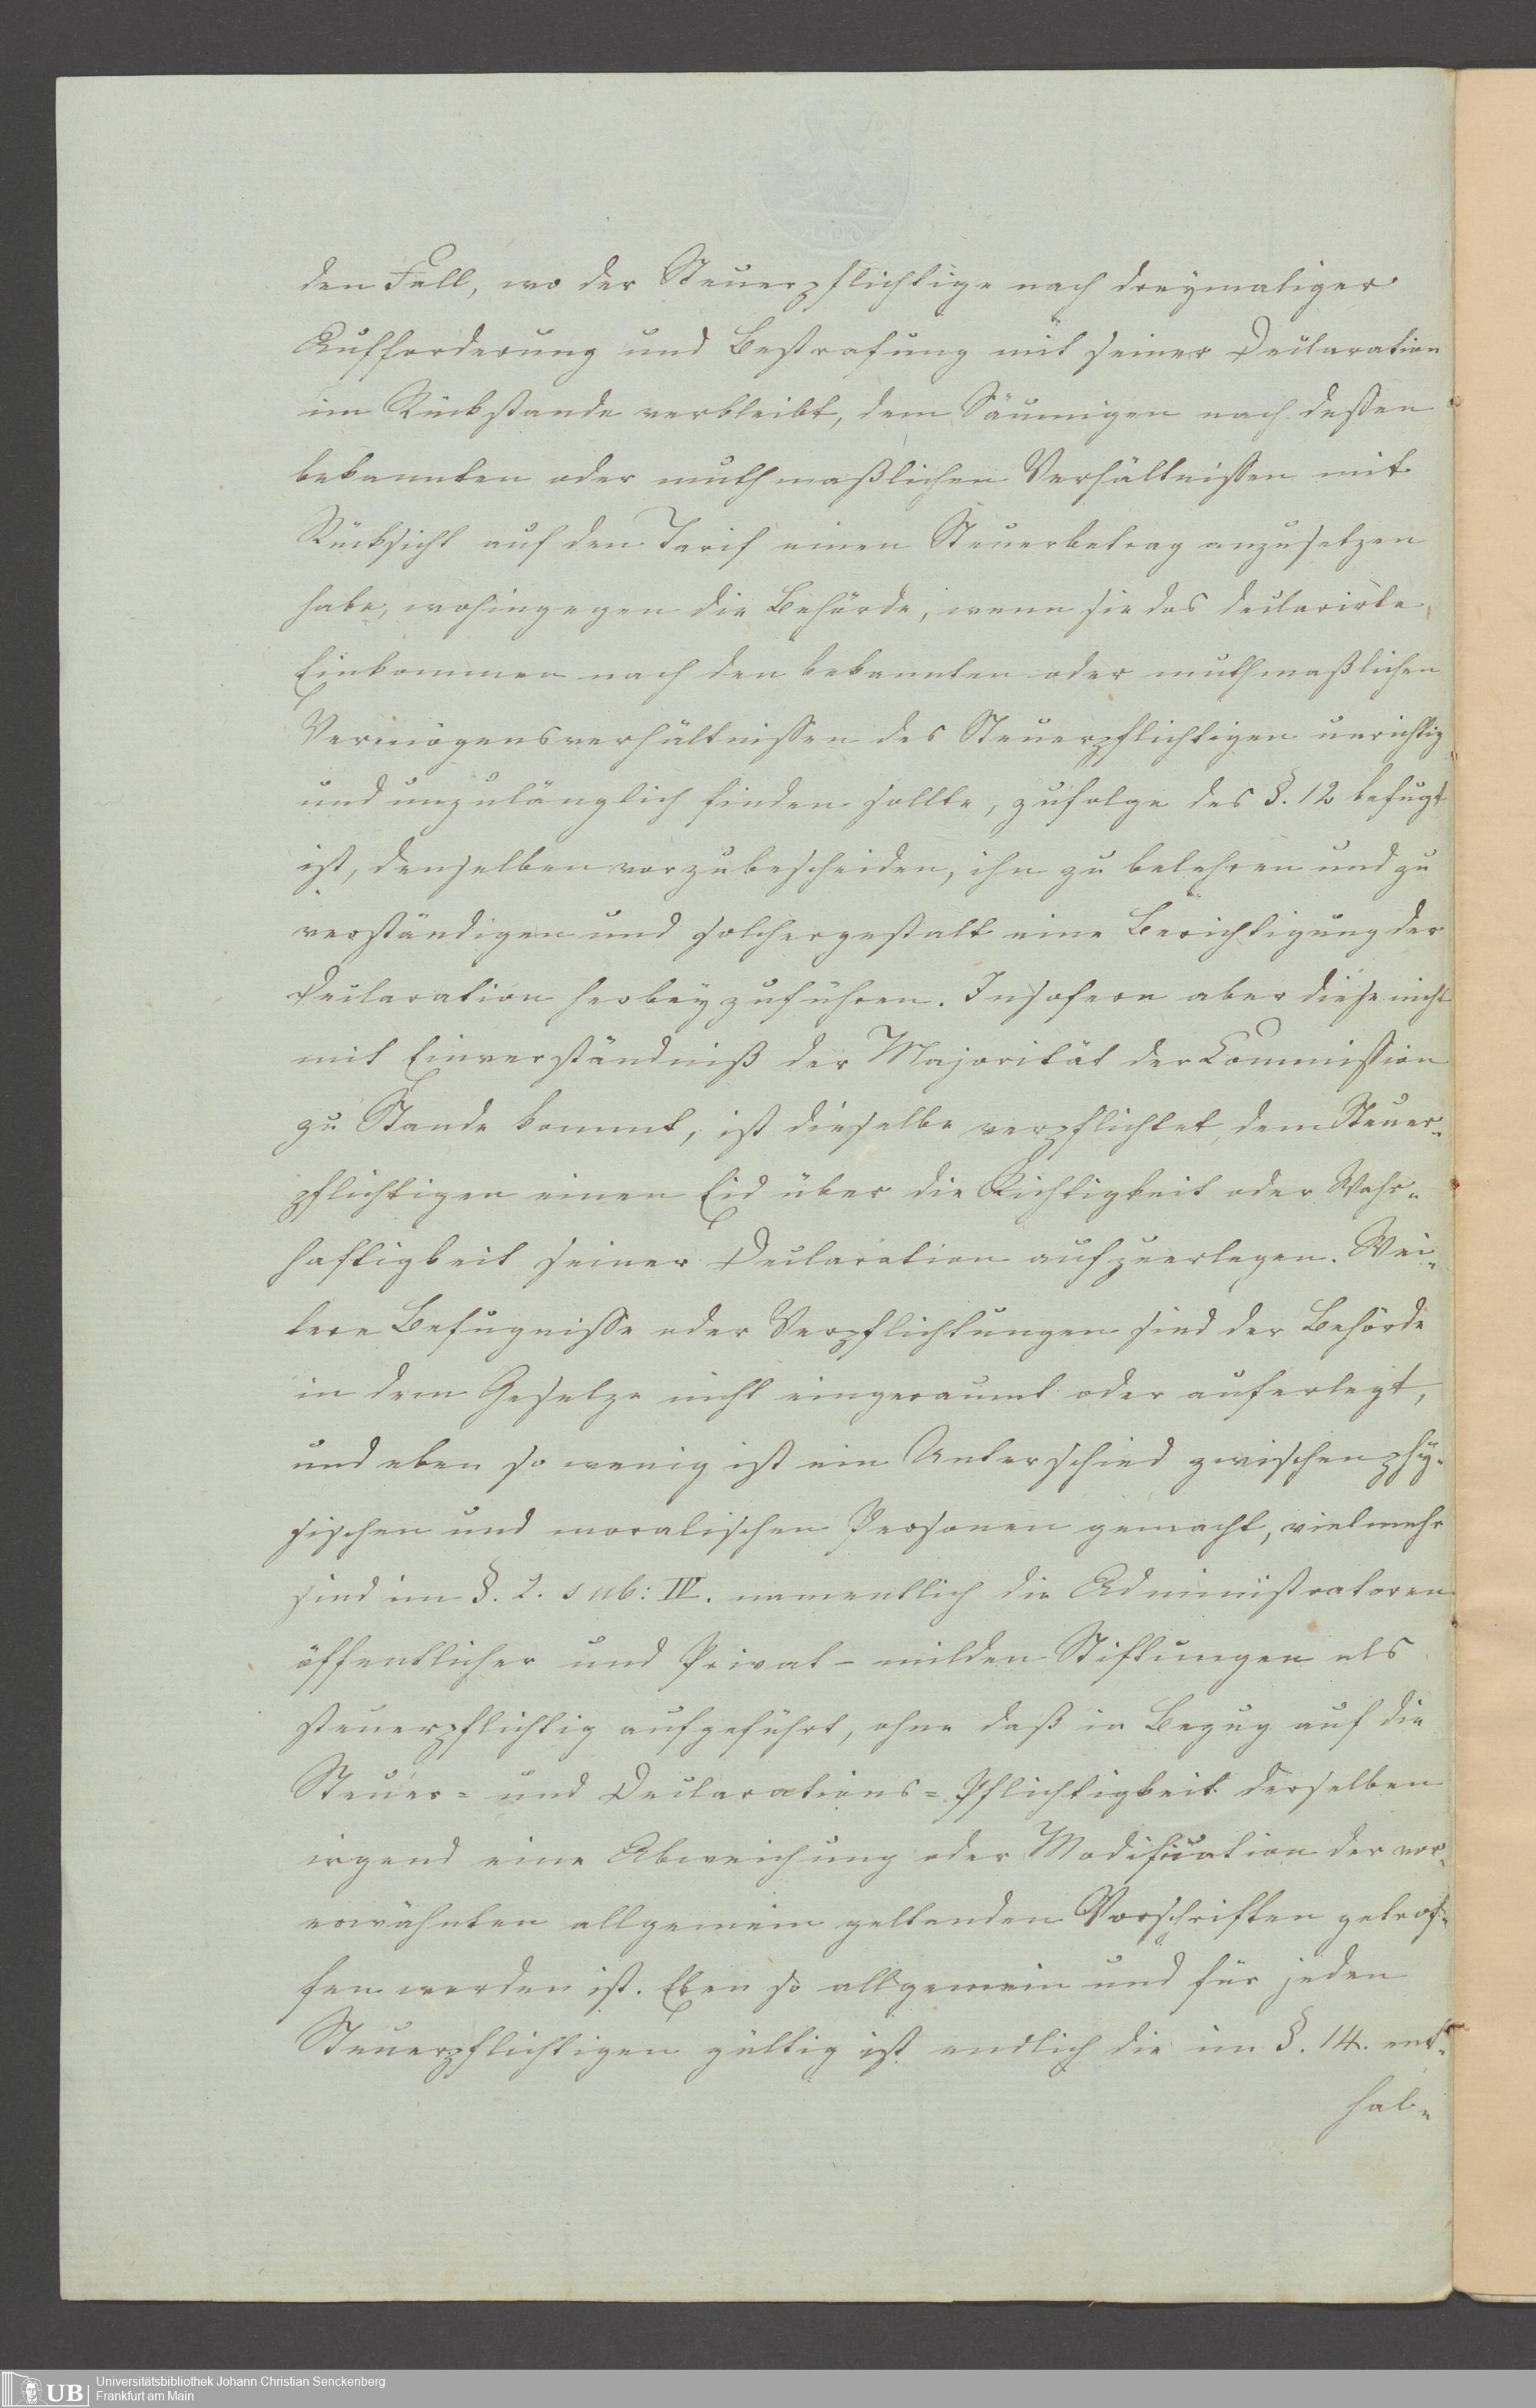 den Fall, wo der Steuerpflichtige nach dreymaliger
Aufforderung und Bestrafung mit seiner Declaration
im Rückstande verbleibt, dem Säumigen nach dessen
bekannten oder muthmaßlichen Verhältnissen mit
Rücksicht auf den Tarif einen Steuerbetrag anzusetzen
habe, wohingegen die Behörde, wenn sie das declarirte
Einkommen nach den bekannten oder muthmaßlichen
Vermögensverhältnissen des Steuerpflichtigen unrichtig
und unzulänglich finden sollte, zufolge des §. 12 befugt
ist, denselben vorzubescheiden, ihn zu belehren und zu
verständigen und solchergestalt eine Berichtigung der
Declaration herbeyzuführen. Insofern aber diese nicht
mit Einverständniß der Majorität der Commission
zu Stande kommt, ist dieselbe verpflichtet, dem Steuer-
pflichtigen einen Eid über die Richtigkeit oder Wahr-
haftigkeit seiner Declaration aufzuerlegen. Wei-
tere Befugnisse oder Verpflichtungen sind der Behörde
in dem Gesetze nicht eingeraumt oder auferlegt,
und eben so wenig ist ein Unterschied zwischen phy-
sischen und moralischen Personen gemacht, vielmehr
sind im §. 2. sub: IV. namentlich die Administratoren
öffentlicher und Privat-milden Stiftungen als
steuerpflichtig aufgeführt, ohne daß in Bezug auf die
Steuer- und Declarations-Pflichtigkeit derselben
irgend eine Abweichung oder Modification der vor-
erwähnten allgemein geltenden Vorschriften getrof-
fen worden ist. Eben so allgemein und für jeden
Steuerpflichtigen gültig ist endlich die im §. 14. ent-
hal-
UB
Universitätsbibliothek Johann Christian Senckenberg
Frankfurt am Main